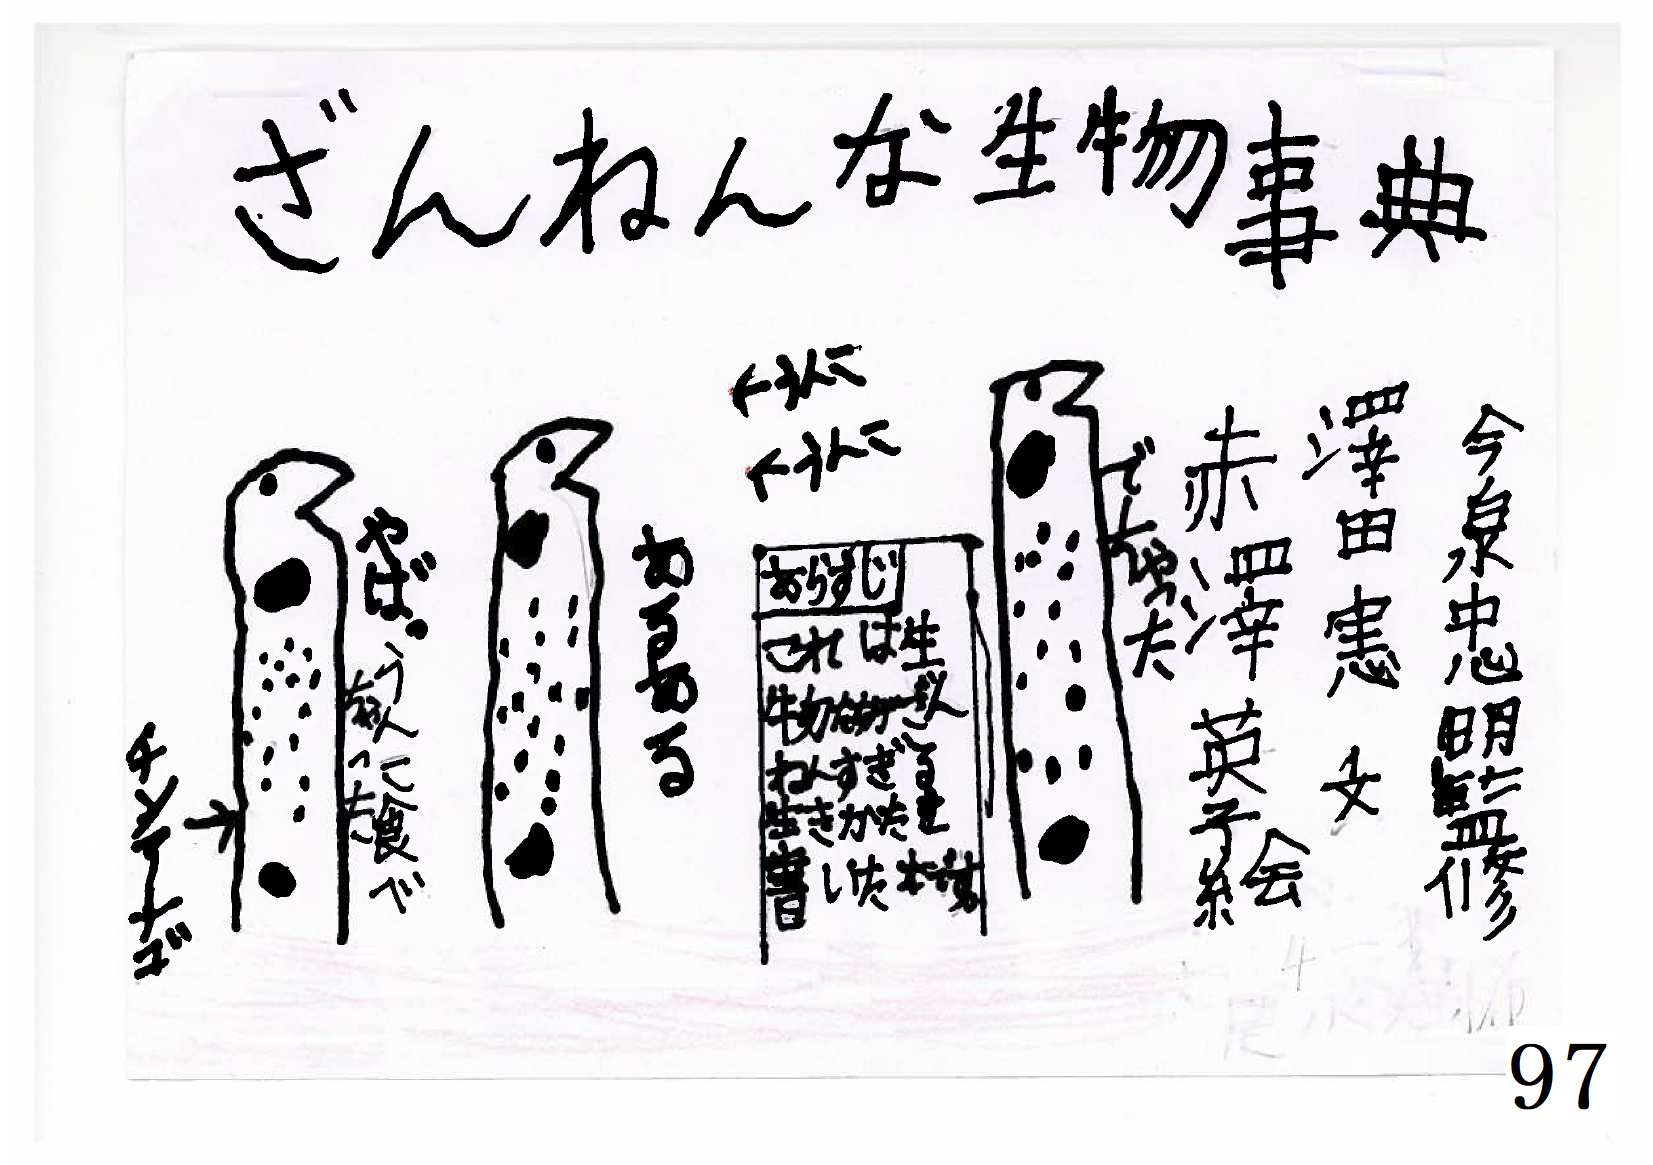 ざんねんな生物事典
今泉忠明監修
澤田憲 女
赤澤英子絵
会
でちゃった
←うんこ
←うんこ
あらすじ
これは生
物
ねんすぎる
生きかた
書いた本
あるある
やば。
うんこ食べ
ちゃった
チンアナゴ
97